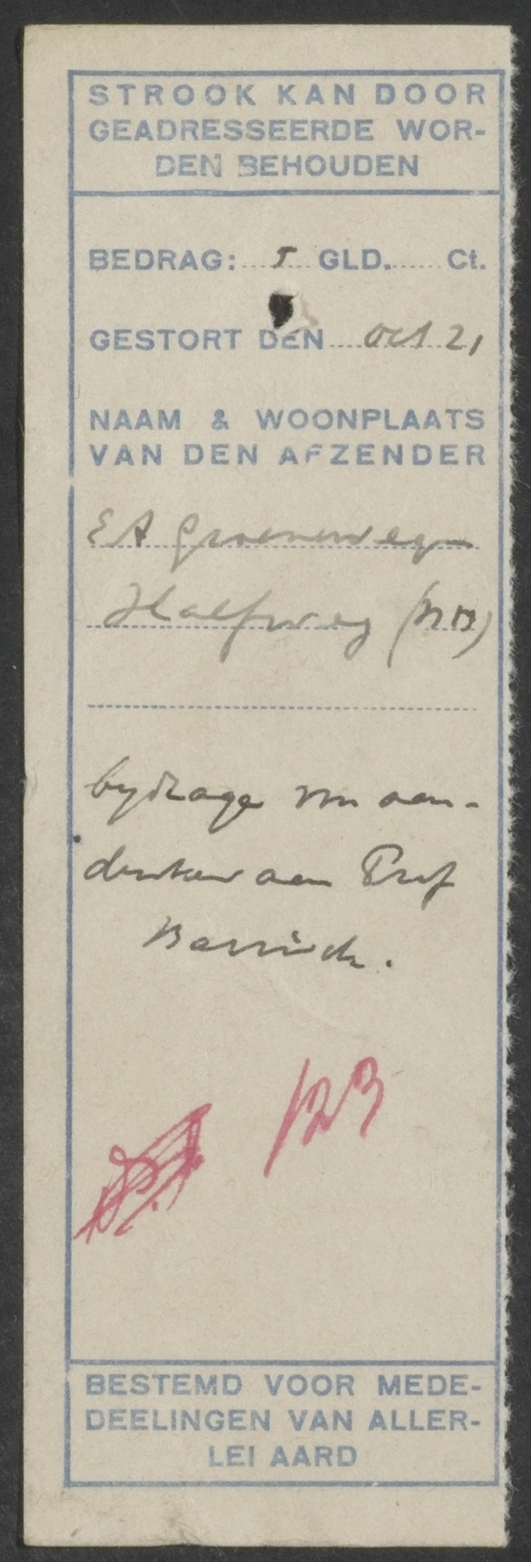 STROOK KAN DOOR
GEADRESSEERDE WOR-
DEN BEHOUDEN
BEDRAG: 5 GLD. Ct.
GESTORT DEN Oct 21
NAAM & WOONPLAATS
VAN DEN AFZENDER
E A Groeneweg
Halfweg (NH)
bydrage
aan Prof
123
BESTEMD VOOR MEDE-
DEELINGEN VAN ALLER-
LEI AARD